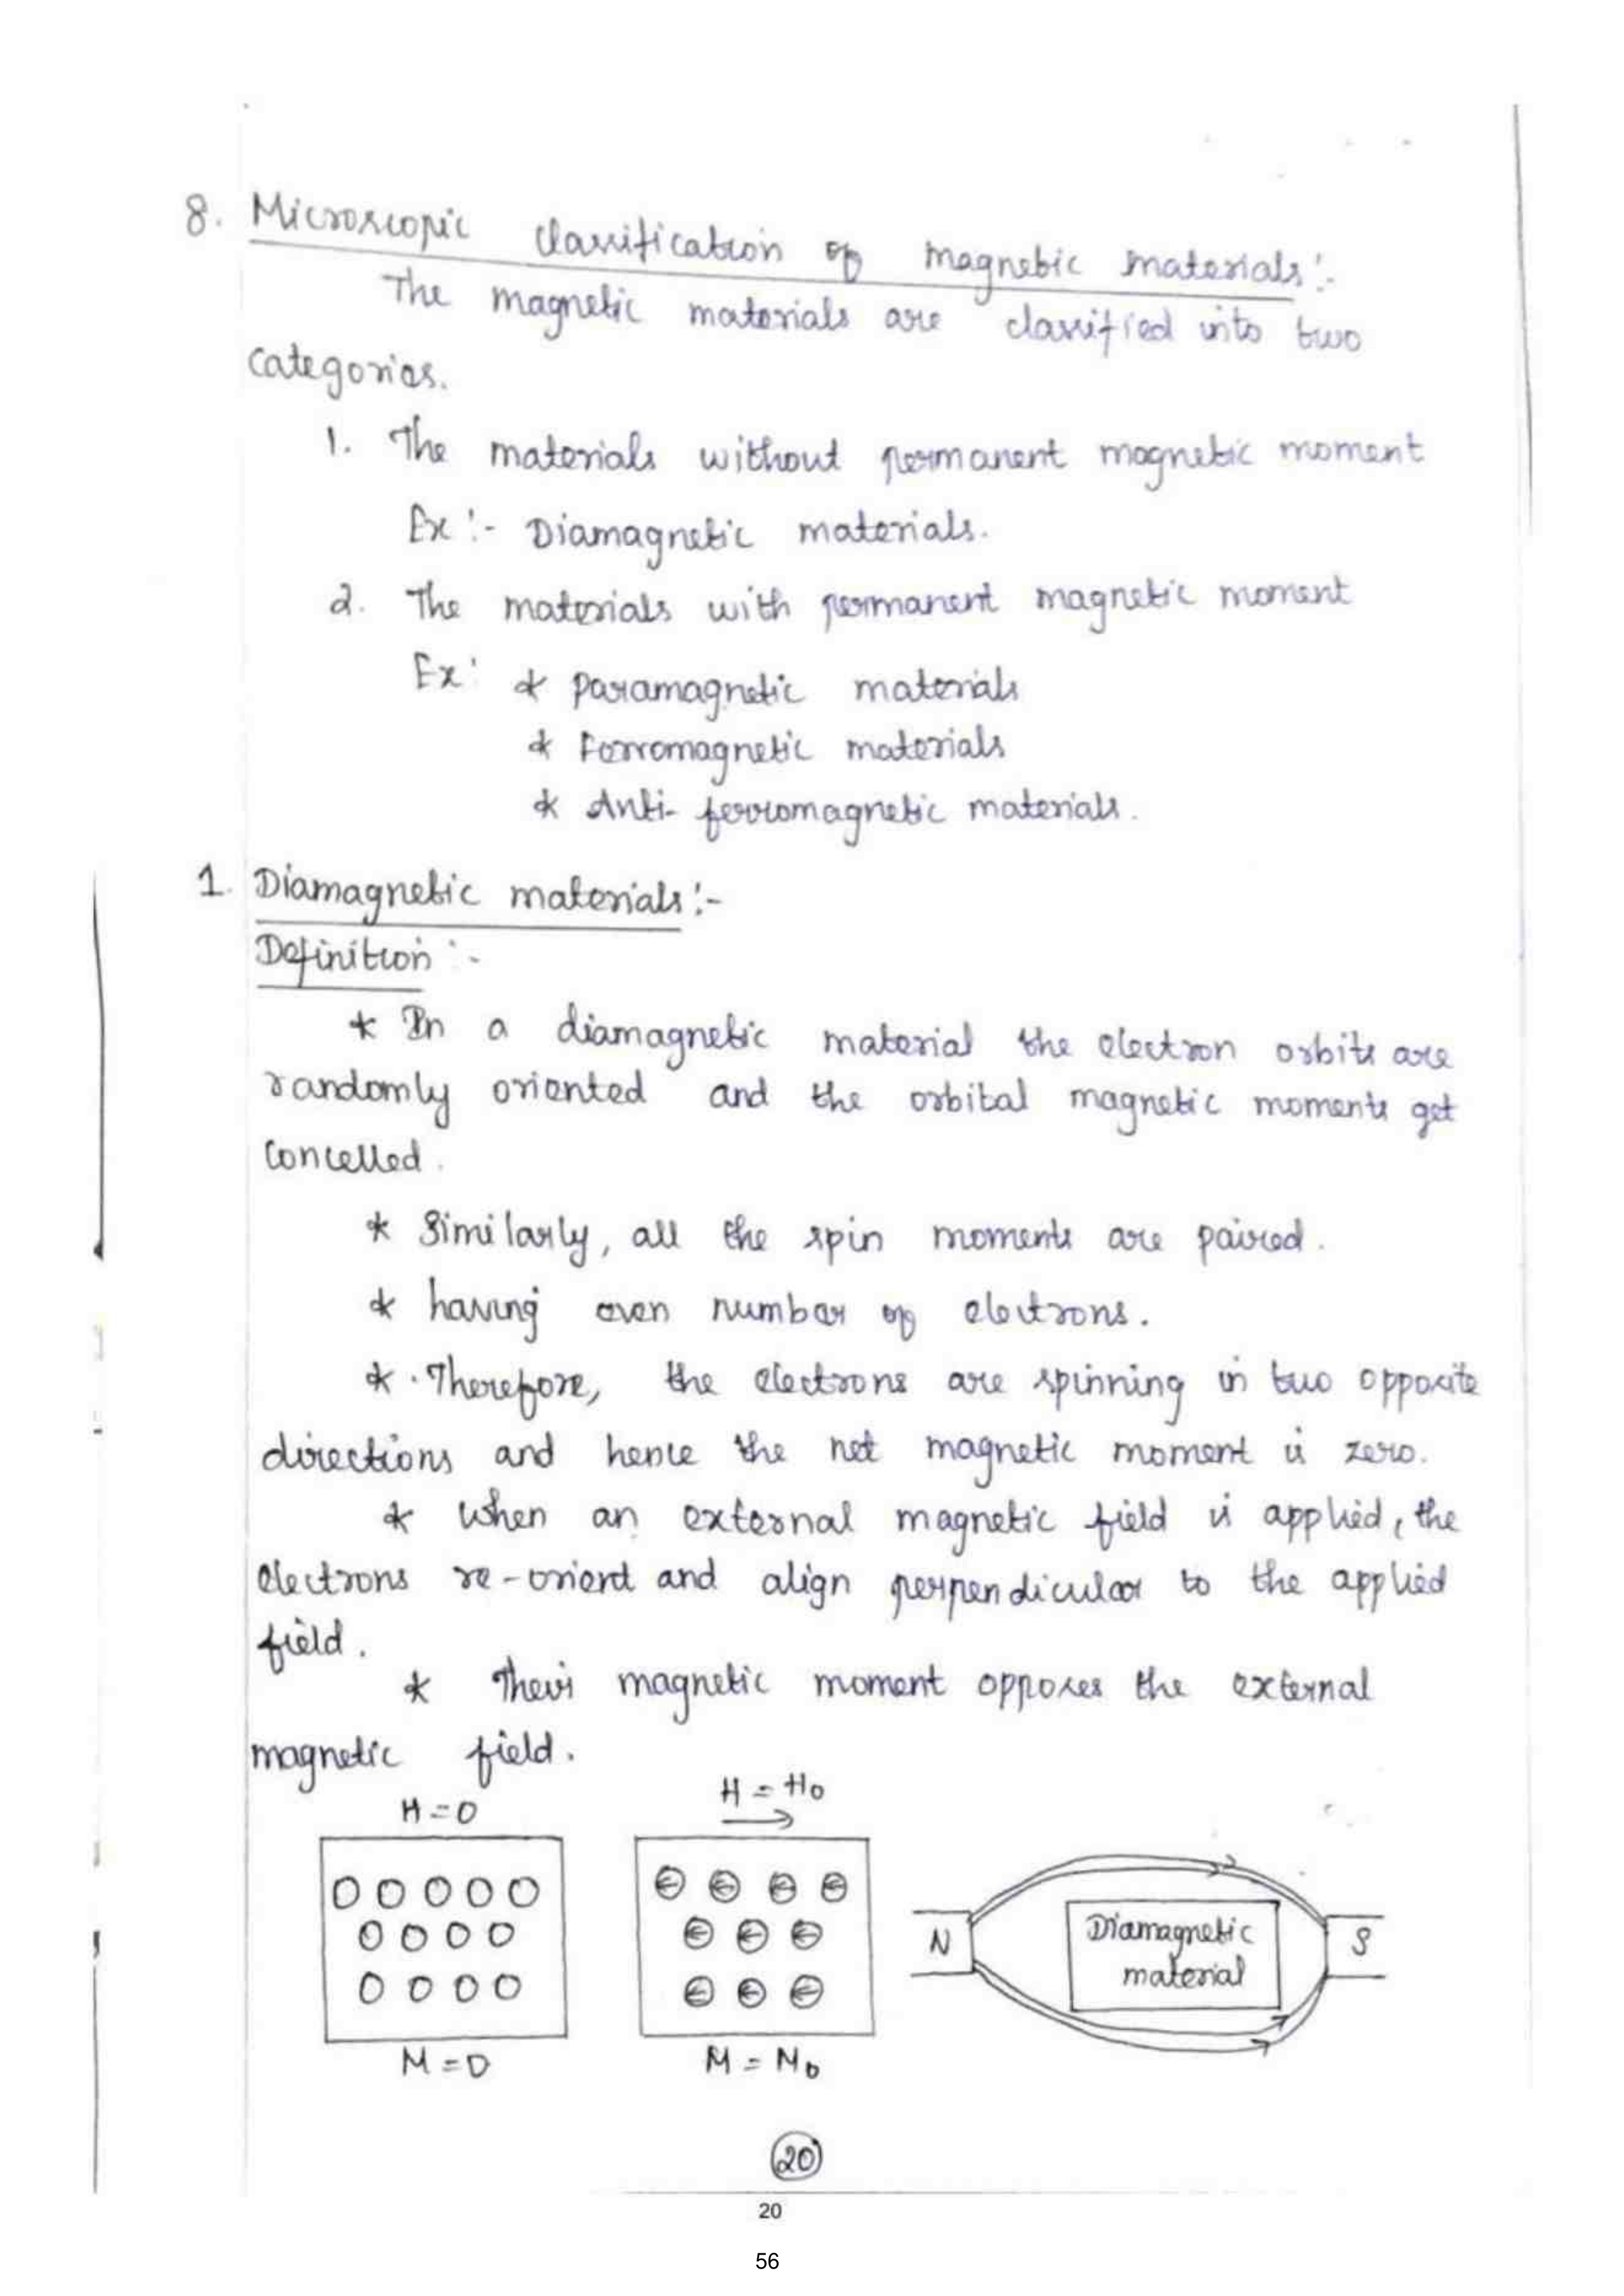 8. Microscopic classification of magnetic materials:-
The magnetic materials are classified into two
categories.
1. The materials without permanent magnetic moment
Ex:- Diamagnetic materials.
2. The materials with permanent magnetic moment
Ex: * Paramagnetic materials
* Ferromagnetic materials
* Anti-ferromagnetic materials.
1. Diamagnetic materials:-
Definition:-
* In a diamagnetic material the electron orbits are
randomly oriented and the orbital magnetic moments get
concelled.
* Similarly, all the spin moments are paired.
* having even number of electrons.
* Therefore, the electrons are spinning in two opposite
directions and hence the net magnetic moment is zero.
* When an external magnetic field is applied, the
electrons re-orient and align perpendicular to the applied
field.
* Their magnetic moment opposes the external
magnetic field.
H = 0
H = H0
N
Diamagnetic
material
S
M = 0
M = M0
20
20
56